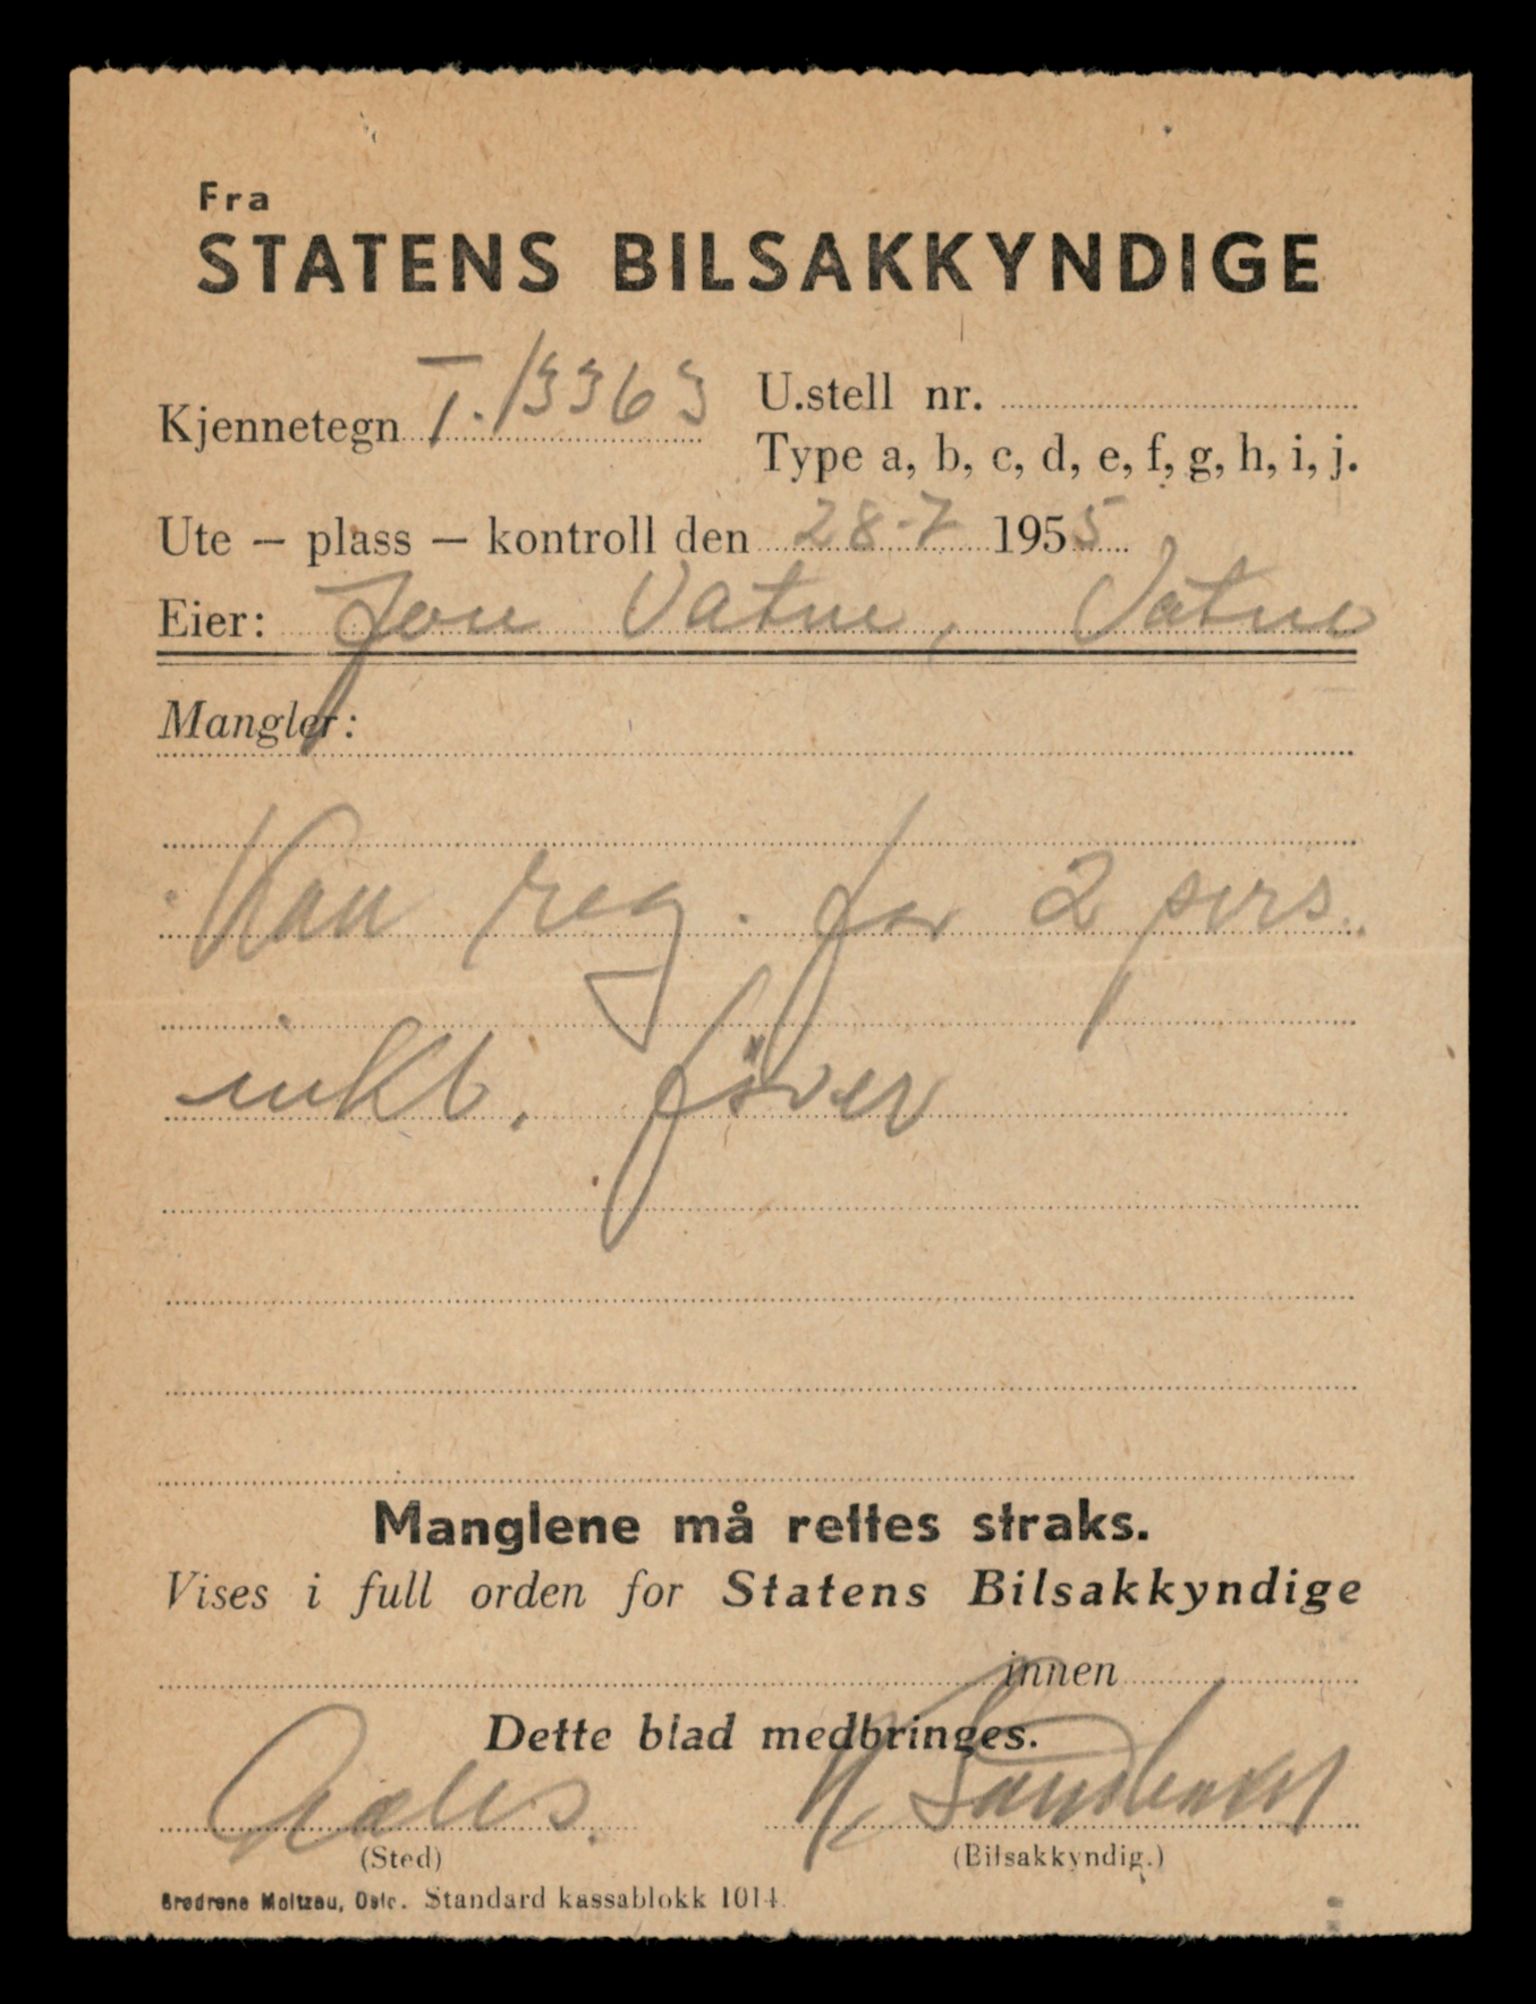 Fra
STATENS BILSAKKYNDIGE
Kjennetegn T. 13363
U.stell nr.
Type a, b, c, d, e, f, g, h, i, j.
Ute — plass — kontroll den 28-7 1955
Eier: Jon Vatne, Vatne
Mangler:
Kan reg. for 2 pers.
inkl. fører
Manglene må rettes straks.
Vises i full orden for Statens Bilsakkyndige
innen
Dette blad medbringes.
(Sted)
(Bilsakkyndig.)
Brødrene Moltzau, Oslo. Standard kassablokk 1014.